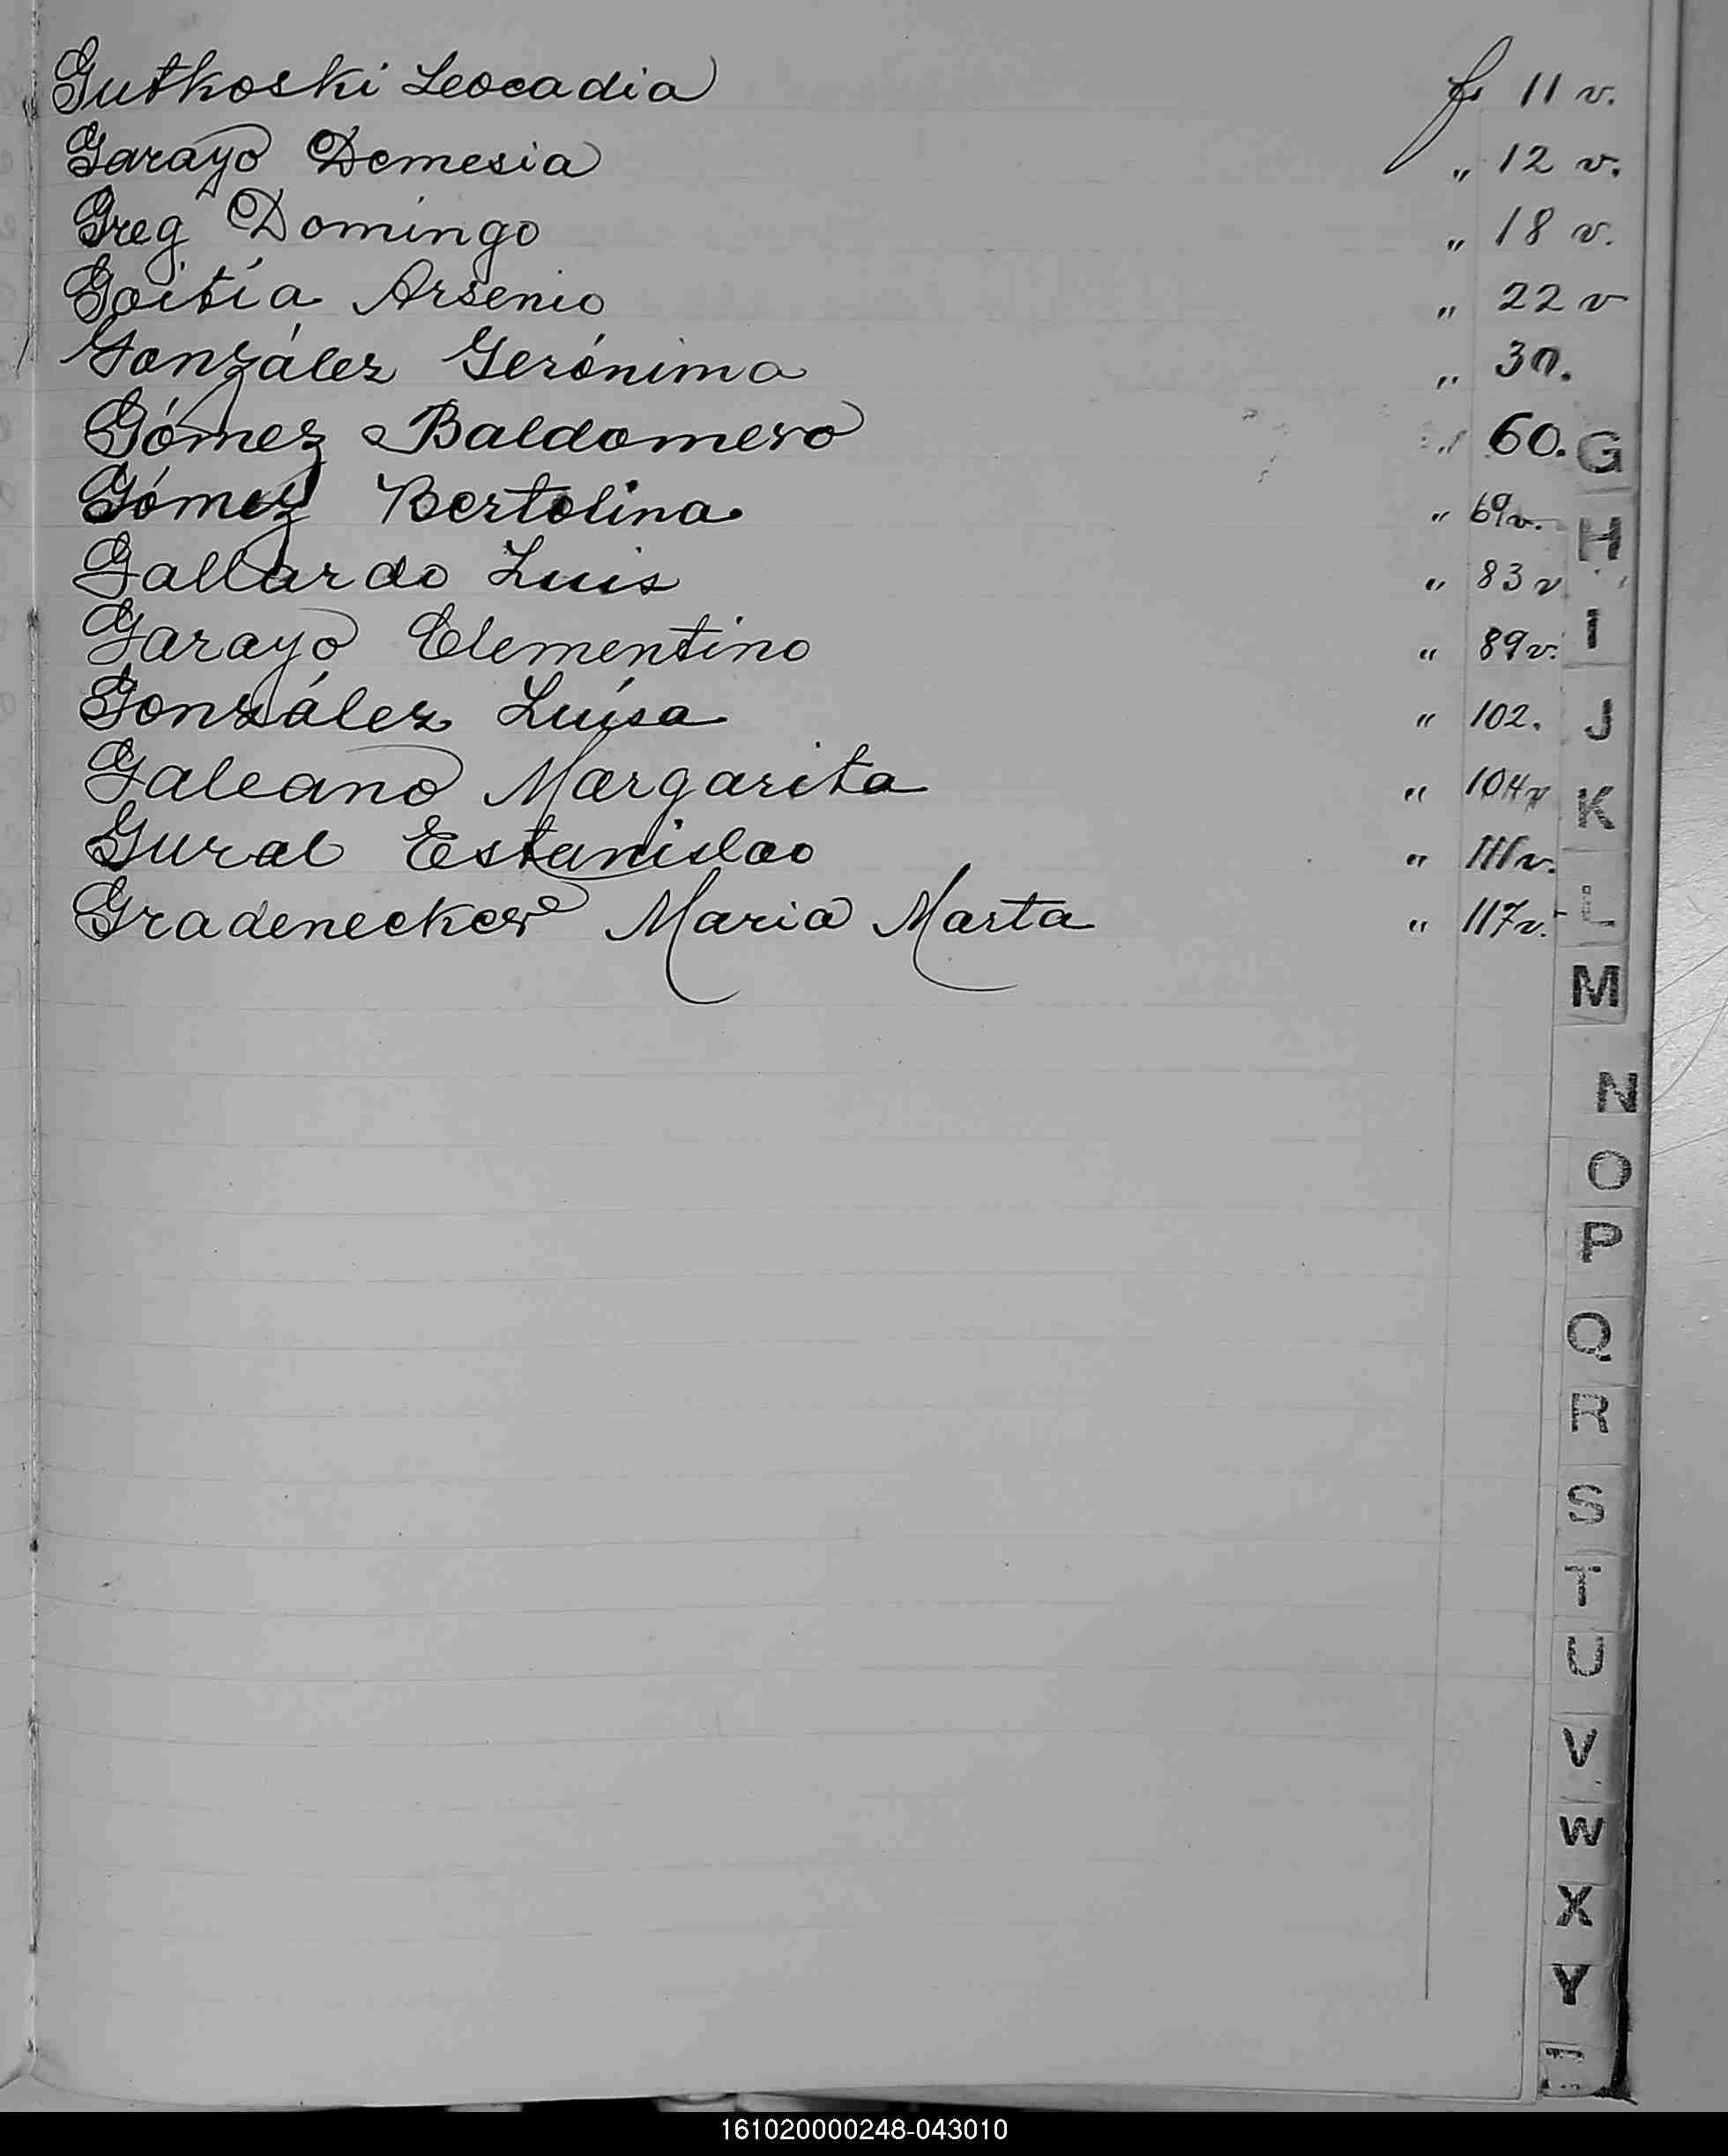 Gutkoski Leocadia fs 11 v.
Garayo Demesia " 12 v.
Greg Domingo " 18 v.
Goitía Arsenio " 22 v
González Gerónima " 30.
Gómez Baldomero " 60.
Gómez Bertolina " 69v.
Gallardo Luis " 83 v
Garayo Clementino " 89v.
González Luisa " 102.
Galeano Margarita " 104v
Gural Estanislao " 111v.
Gradenecker Maria Marta " 117v.
G
H
I
J
K
L
M
N
O
P
Q
R
S
T
U
V
W
X
Y
161020000248-043010